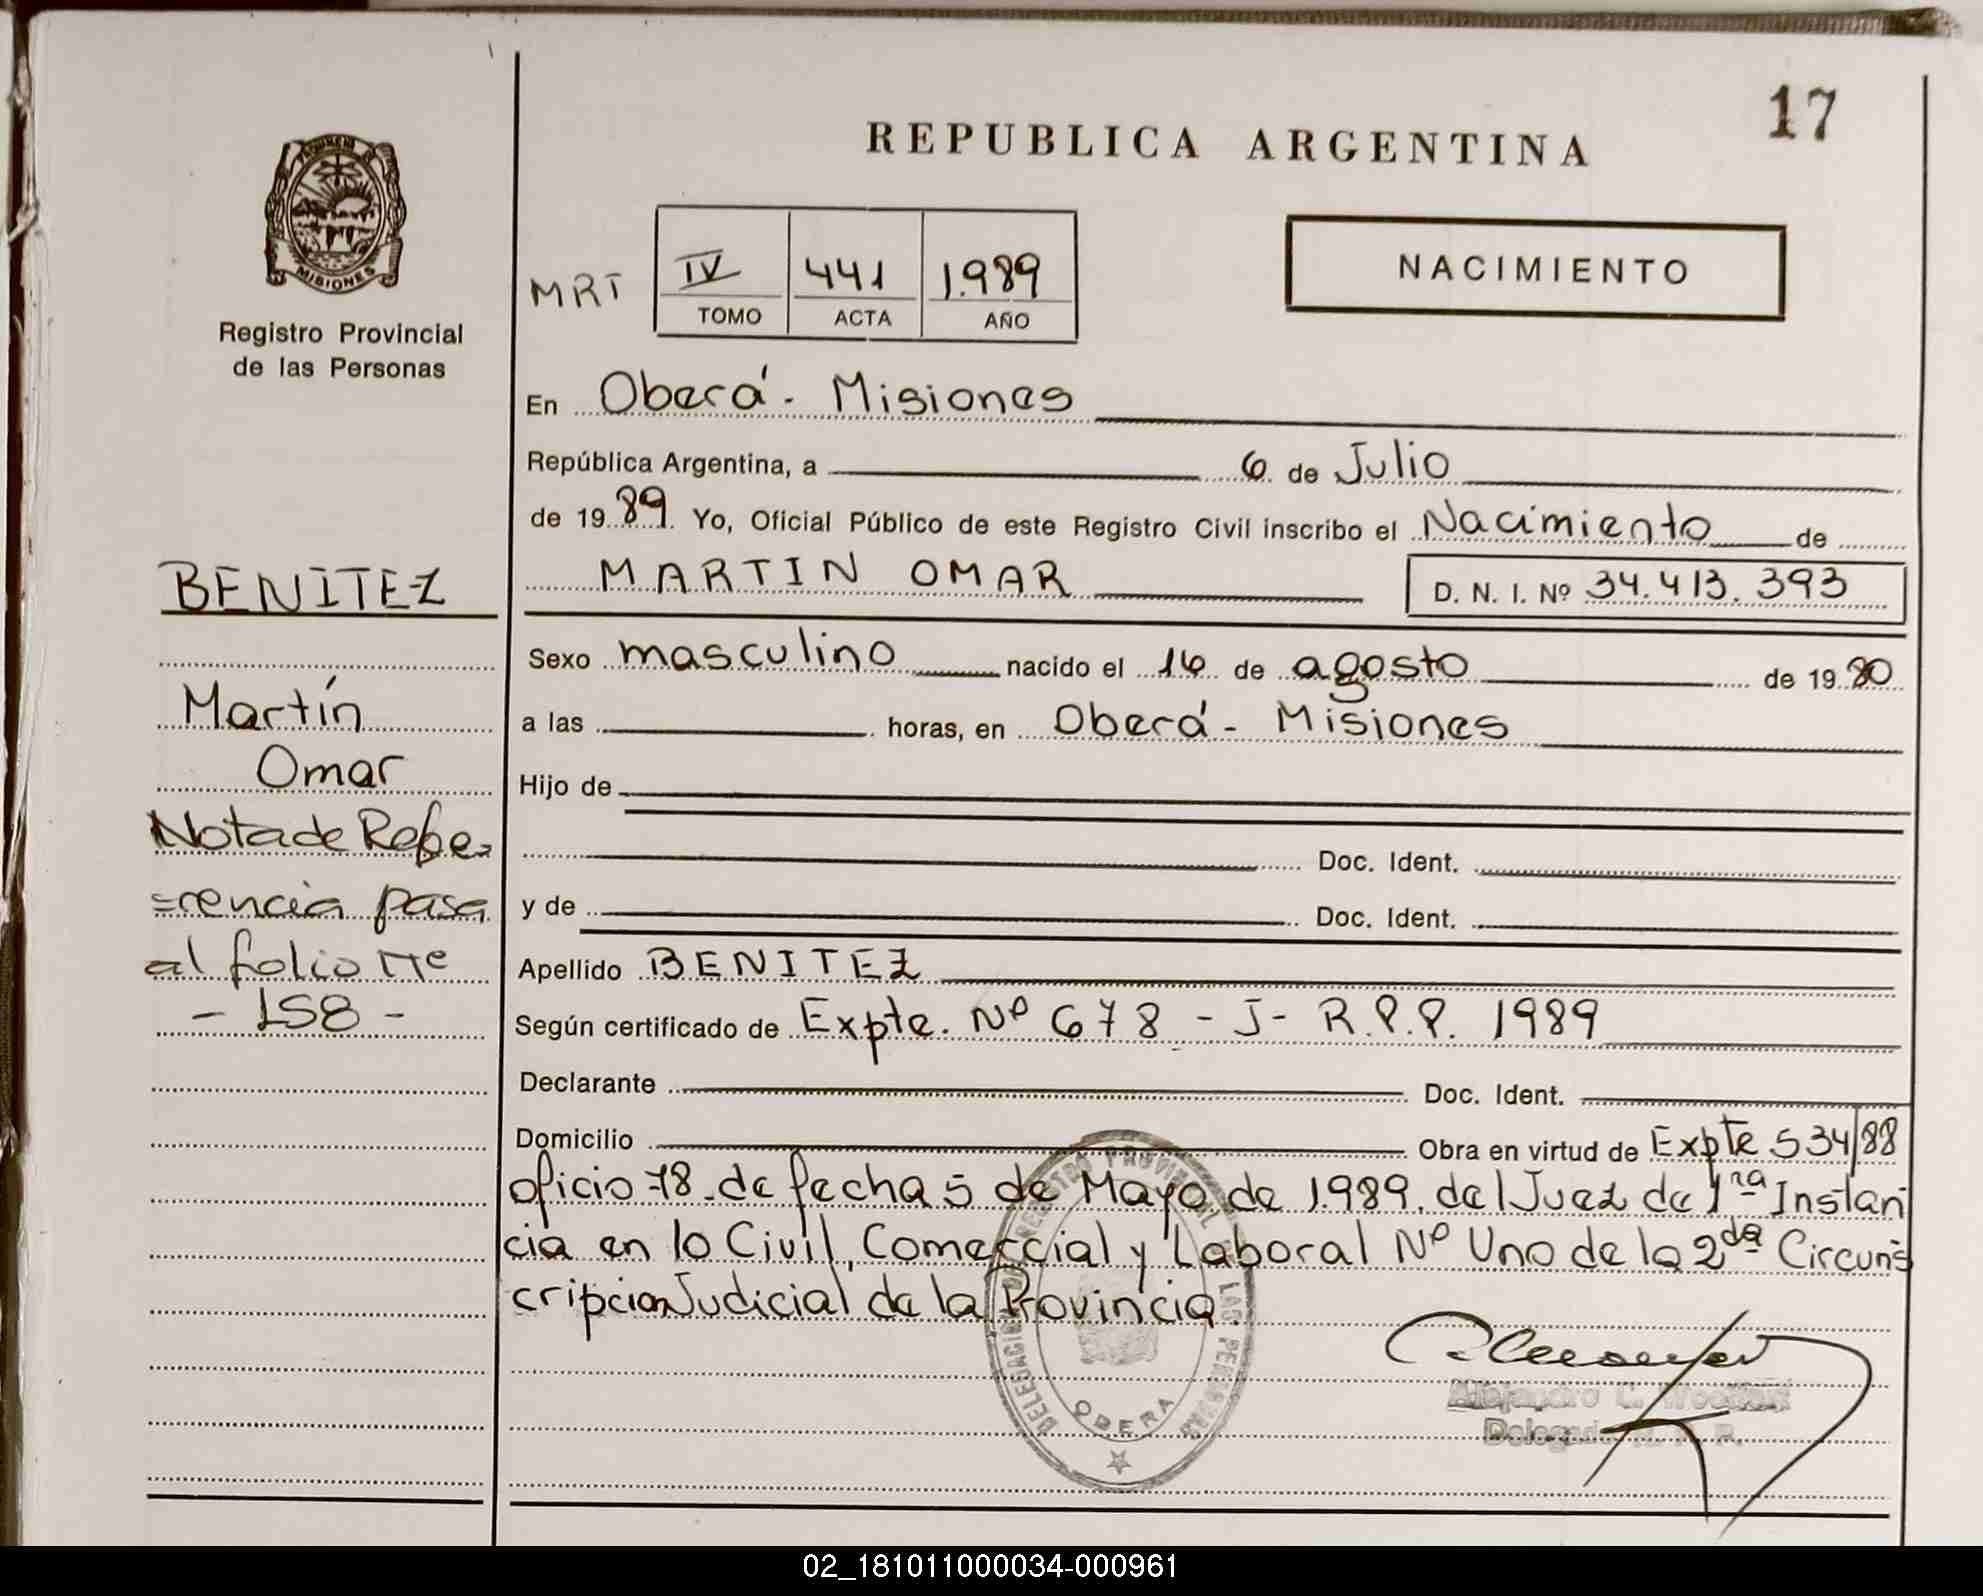 17
REPUBLICA ARGENTINA
PROVINCIA DE
MISIONES
Registro Provincial
de las Personas
NACIMIENTO
MRT
IV 441 1.989
TOMO ACTA AÑO
En Oberá - Misiones
República Argentina, a 6 de Julio
de 1989 Yo, Oficial Público de este Registro Civil inscribo el Nacimiento de
MARTIN OMAR D. N. I. Nº 34.413.393
BENITEZ
Sexo masculino nacido el 16 de agosto de 1980
Martín
a las horas, en Oberá - Misiones
Omar
Hijo de
Nota de Refe=
Doc. Ident.
=rencia pasa
y de Doc. Ident.
al folio Nº
Apellido BENITEZ
- 158 -
Según certificado de Expte. Nº 678 - J - R.P.P. 1989
Declarante Doc. Ident.
Domicilio Obra en virtud de Expte 534/88
oficio 78. de fecha 5 de Mayo de 1.989. del Juez de 1ra Instan
cia en lo Civil, Comercial y Laboral Nº Uno de la 2da Circuns
cripcion Judicial de la Provincia.
DELEGACION REGISTRO PROVINCIAL DE LAS PERSONAS
OBERA
Alejandro
Delegado R. P. P.
02_181011000034-000961